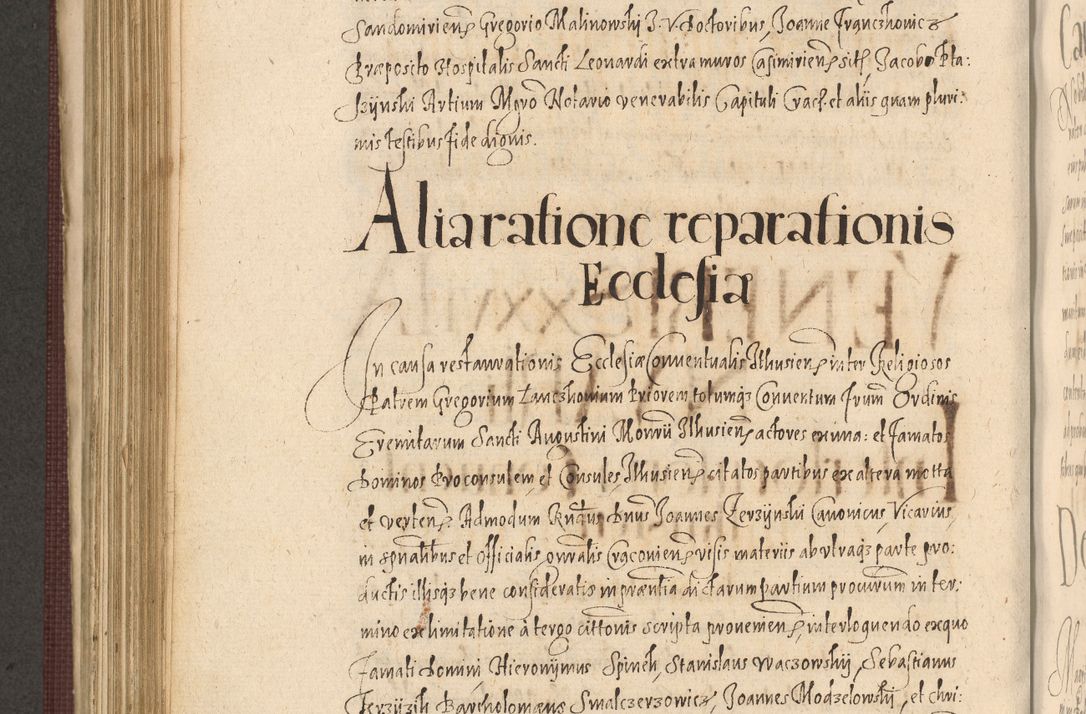 Sandomirien̄ Gregorio Malinowski J. V. Doctoribus, Joanne Franczkonic &
Præposito Hospitalis Sancti Leonardi extra muros Casimirien̄ sit̄, Jacobo Pta:
szÿnski Artium Mgrō Notario venerabilis Capituli Crac̄. et aliis quam pluri:
mis testibus fide dignis.
Alia ratione reparationis
Ecclesiæ
In causa restaurationis Ecclesiæ Conventualis Ilkusien̄ inter Religiosos
Patrem Gregorium Lanczkonium Priorem totumqꝫ Conventum frum̄ Ordinis
Eremitarum Sancti Augustini Monrii Ilkusien̄ actores ex una: et famatos
Dominos Proconsulem, et Consules Ilkusien̄ citatos partibus ex altera motta
et verten̄ Admodum Rn̄dus Dnus Joannes Zerzÿnski Canonicus, Vicarius,
in spn̄alibus et Officialis gn̄ralis Cracovien̄ visis materiis ab utraqꝫ parte pro:
ductis illisqꝫ bene consideratis in præn̄tia dictarum partium procurum in ter:
mino ex limitatione à tergo cittōnis scripta provenien̄ interloquendo ex quo
famati Domini Hieronÿmus Spinek, Stanislaus Waczowskÿ, Sebastianus
Zerzÿzik Bartholomæus Smalczerzowicz, Joannes Modzelowskÿ, et chri: